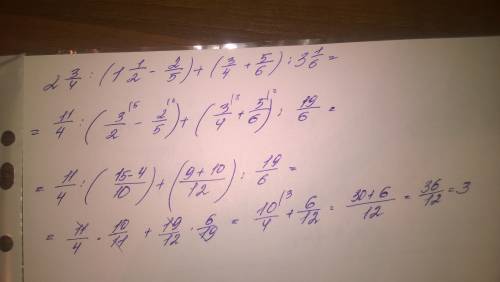 2 3/4 : (1 1/2 - 2/5) + (3/4 + 5/6) : 3 1/6 =
= 11/4 : (3/2 |5 - 2/5 |2) + (3/4 |3 + 5/6 |2) : 19/6 =
= 11/4 : (15-4/10) + (9+10/12) : 19/6 =
= 11/4 · 10/11 + 19/12 · 6/19 = 10/4 |3 + 6/12 = 30+6/12 = 36/12 = 3